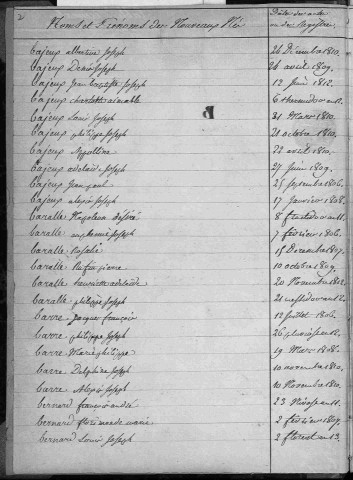 2
Noms et Prénoms des Nouveaux Nés
Date des actes ou des Registres
Cajeux albertine Joseph 24 Décembre 1810.
Cajeux Denis Joseph 26 avril 1809.
Cajeux Jean Baptiste Joseph 12 Juin 1812.
Cajeux charlotte aimable 6 thermidor an 12.
Cajeux Louis Joseph 31 Mars 1810.
Cajeux philippe Joseph 21 octobre 1810.
Cajeux Appolline 22 avril 1810.
Cajeux adelaide Joseph 27 Juin 1809.
Cajeux Jean paul 25 septembre 1806.
Cajeux alexis Joseph 17 Janvier 1808.
Caralle Napoleon désiré 8 fructidor an 12.
Caralle Joseph 7 février 1806.
Caralle Rosalie 15 Décembre 1807.
Caralle Rufine 10 octobre 1809.
Caralle henriette adelaide 20 Novembre 1812.
Caralle philippe Joseph 21 an 12.
Carre Jacques françois 12 Juillet 1806.
Carre philippe Joseph 26 pluviose an 12.
Carre Marie philippe 19 Mars 1808.
Carre Delphine Joseph 10 novembre 1810.
Carre Alexis Joseph 10 Novembre 1810.
Bernard francois andré 23 Nivose an 11.
Bernard florimonde marie 2 février 1809.
Bernard Louis Joseph 2 floreal an 13.